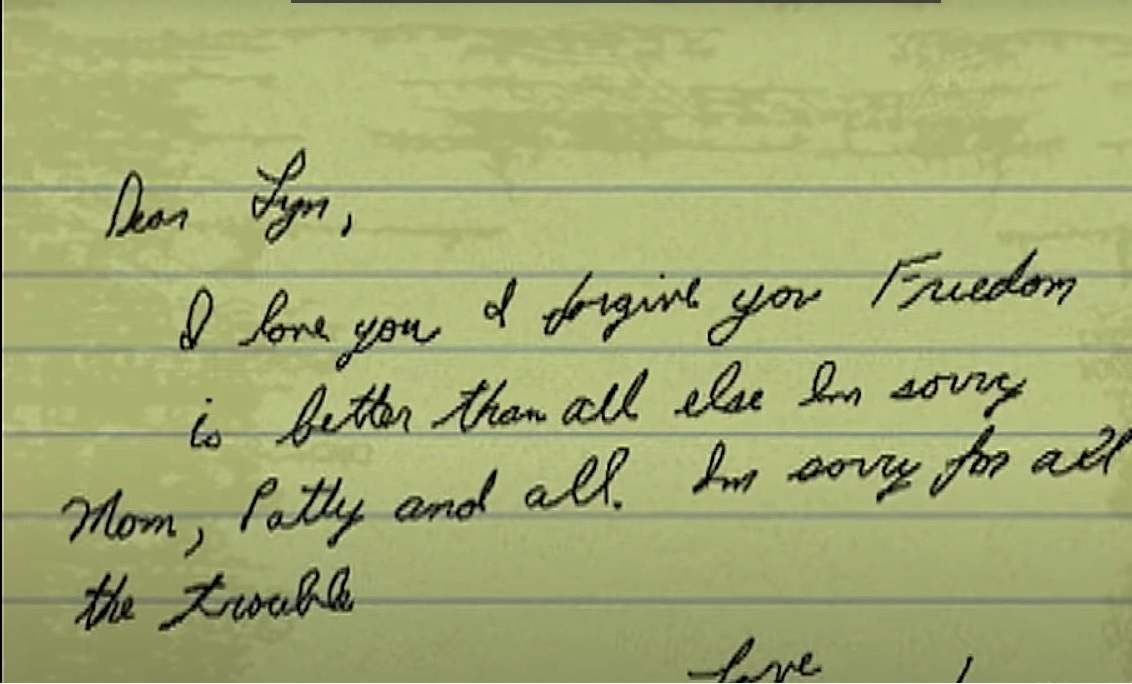 Dear Lyn,
I love you I forgive you Freedom
is better than all else Im sorry
Mom, Patty and all. Im sorry for all
the trouble
Love